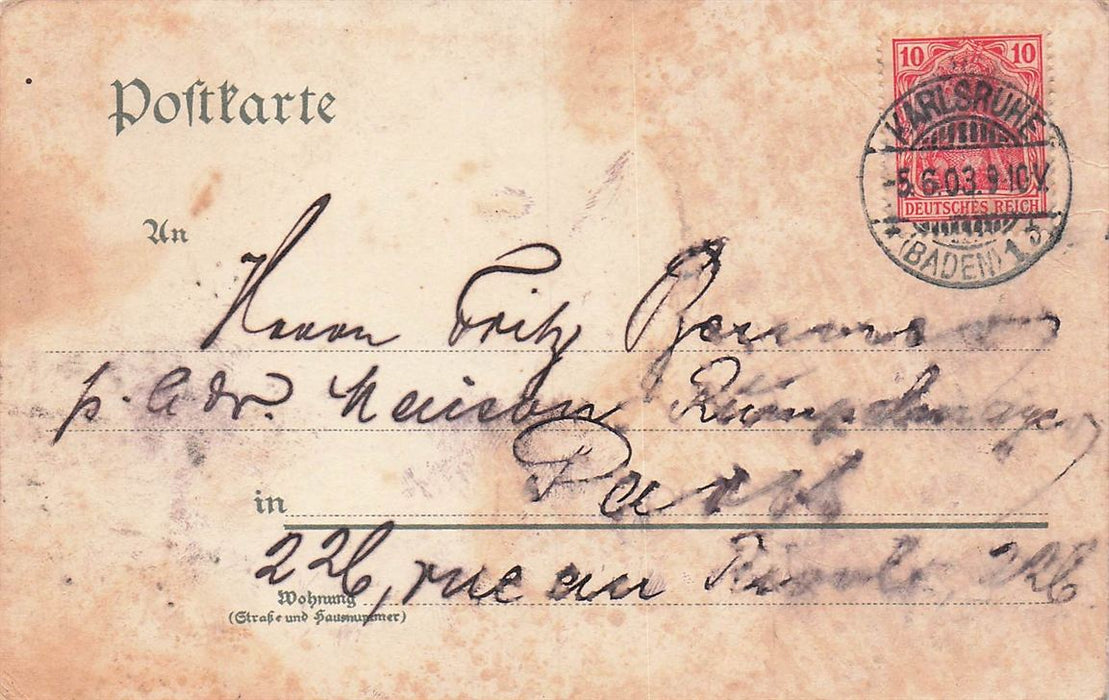 Postkarte
10 10
DEUTSCHES REICH
KARLSRUHE
5.6.03.9-10V.
(BADEN) 1
An
Herrn Fritz
p. Adr. Maison Rumpelmayer
in Paris
226, rue de Rivoli, 226
Wohnung
(Straße und Hausnummer)